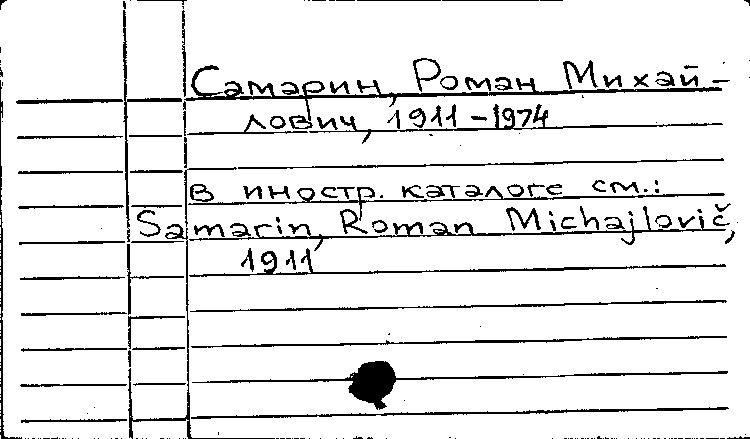 Самарин, Роман Михай-
лович, 1911-1974
В иностр. каталоге см.:
Samarin, Roman Michajlovič,
1911